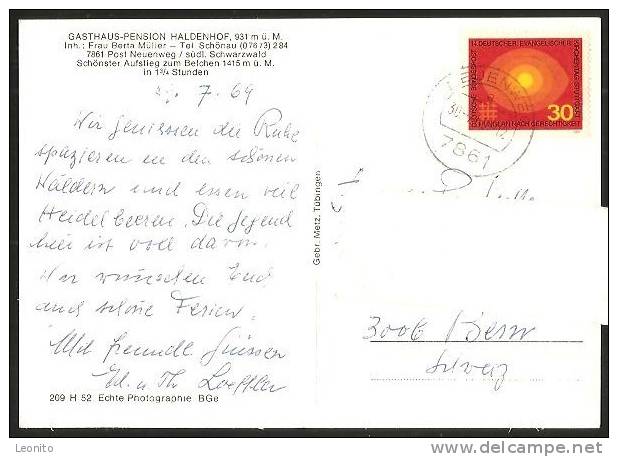 GASTHAUS-PENSION HALDENHOF, 931 m ü. M.
Inh.: Frau Berta Müller — Tel. Schönau (07673) 284
7861 Post Neuenweg / südl. Schwarzwald
Schönster Aufstieg zum Belchen 1415 m ü. M.
in 1¾ Stunden
7. 69
Wir geniessen die Ruhe
spazieren in den schönen
Wäldern und essen viel
Heidelbeeren. Die Gegend
hier ist voll davon.
Wir wünschen Euch
auch schöne Ferien.
Mit freundl. Grüssen
Ed. u. Th. Loeffler
209 H 52 Echte Photographie BGe
Gebr. Metz, Tübingen
14. DEUTSCHER EVANGELISCHER
KIRCHENTAG STUTTGART
DEUTSCHE BUNDESPOST
30
HUNGERN NACH GERECHTIGKEIT
7861
3006 Bern
Schweiz
Leonito
www.delcampe.net